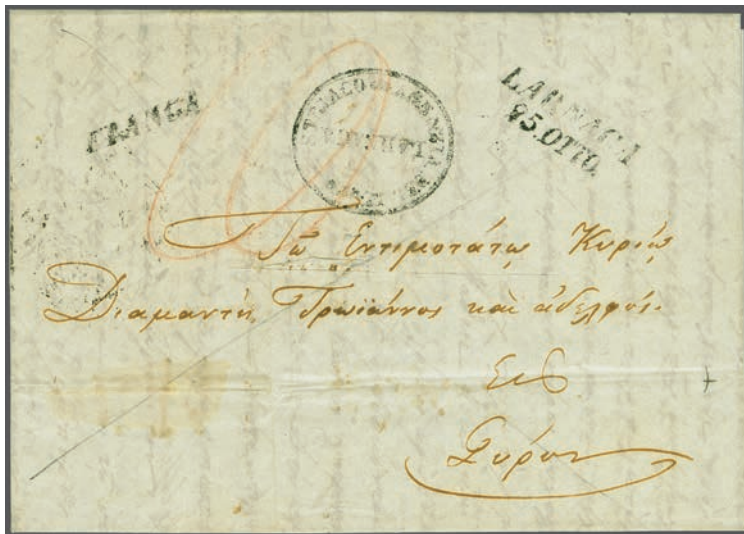 FRANCA
LARNACA
25.OTTO.
Τῷ Ἐντιμοτάτῳ Κυρίῳ
Διαμαντῇ Τρωϊάννος καὶ ἀδελφός.
Εἰς
Σύρον